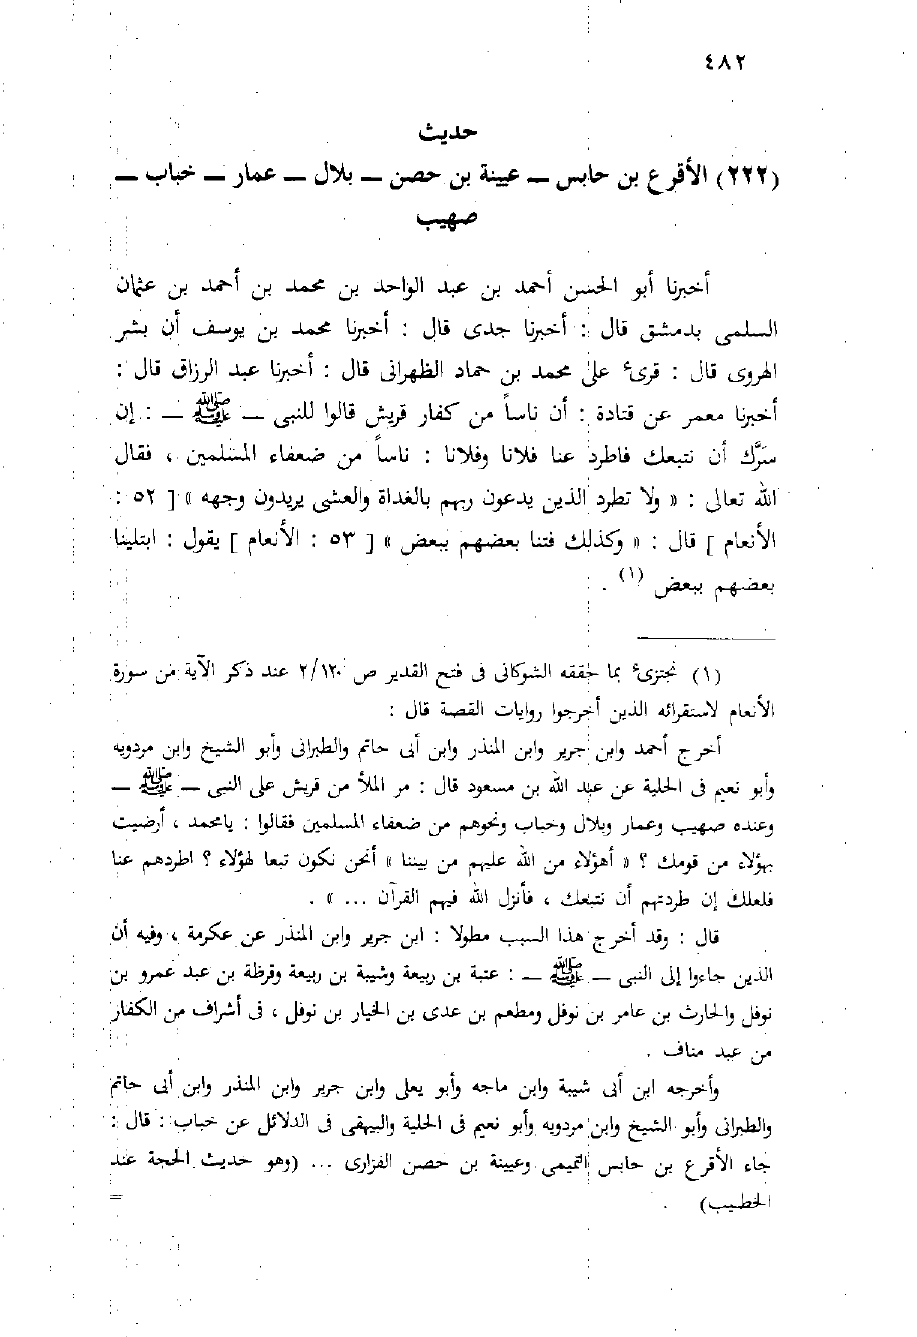 ٤٨٢
حديث
(٢٢٢) الأقرع بن حابس ــ عيينة بن حصن ــ بلال ــ عمار ــ خباب ــ
صهيب
أخبرنا أبو الحسن أحمد بن عبد الواحد بن محمد بن أحمد بن عثمان
السلمى بدمشق قال : أخبرنا جدى قال : أخبرنا محمد بن يوسف أن بشر
الهروى قال : قرىء على محمد بن حماد الظهرانى قال : أخبرنا عبد الرزاق قال :
أخبرنا معمر عن قتادة : أن ناساً من كفار قريش قالوا للنبى ــ ﷺ ــ : إن
سَرَّك أن نتبعك فاطرد عنا فلانا وفلانا : ناساً من ضعفاء المسلمين ، فقال
الله تعالى : « ولا تطرد الذين يدعون ربهم بالغداة والعشى يريدون وجهه » [ ٥٢ :
الأنعام ] قال : « وكذلك فتنا بعضهم ببعض » [ ٥٣ : الأنعام ] يقول : ابتلينا
بعضهم ببعض (١) .
(١) نجتزىء بما حققه الشوكانى فى فتح القدير ص ٢/١٢٠ عند ذكر الآية من سورة
الأنعام لاستقرائه الذين أخرجوا روايات القصة قال :
أخرج أحمد وابن جرير وابن المنذر وابن أبى حاتم والطبرانى وأبو الشيخ وابن مردويه
وأبو نعيم فى الحلية عن عبد الله بن مسعود قال : مر الملأ من قريش على النبى ــ ﷺ ــ
وعنده صهيب وعمار وبلال وخباب ونحوهم من ضعفاء المسلمين فقالوا : يامحمد ، أرضيت
بهؤلاء من قومك ؟ « أهؤلاء من الله عليهم من بيننا » أنحن نكون تبعا لهؤلاء ؟ اطردهم عنا
فلعلك إن طردتهم أن نتبعك ، فأنزل الله فيهم القرآن ... » .
قال : وقد أخرج هذا السبب مطولا : ابن جرير وابن المنذر عن عكرمة ، وفيه أن
الذين جاءوا إلى النبى ــ ﷺ ــ : عتبة بن ربيعة وشيبة بن ربيعة وقرظة بن عبد عمرو بن
نوفل والحارث بن عامر بن نوفل ومطعم بن عدى بن الخيار بن نوفل ، فى أشراف من الكفار
من عبد مناف .
وأخرجه ابن أبى شيبة وابن ماجه وأبو يعلى وابن جرير وابن المنذر وابن أبى حاتم
والطبرانى وأبو الشيخ وابن مردويه وأبو نعيم فى الحلية والبيهقى فى الدلائل عن خباب : قال :
جاء الأقرع بن حابس التميمى وعيينة بن حصن الفزارى ... (وهو حديث الحجة عند
الخطيب) . =